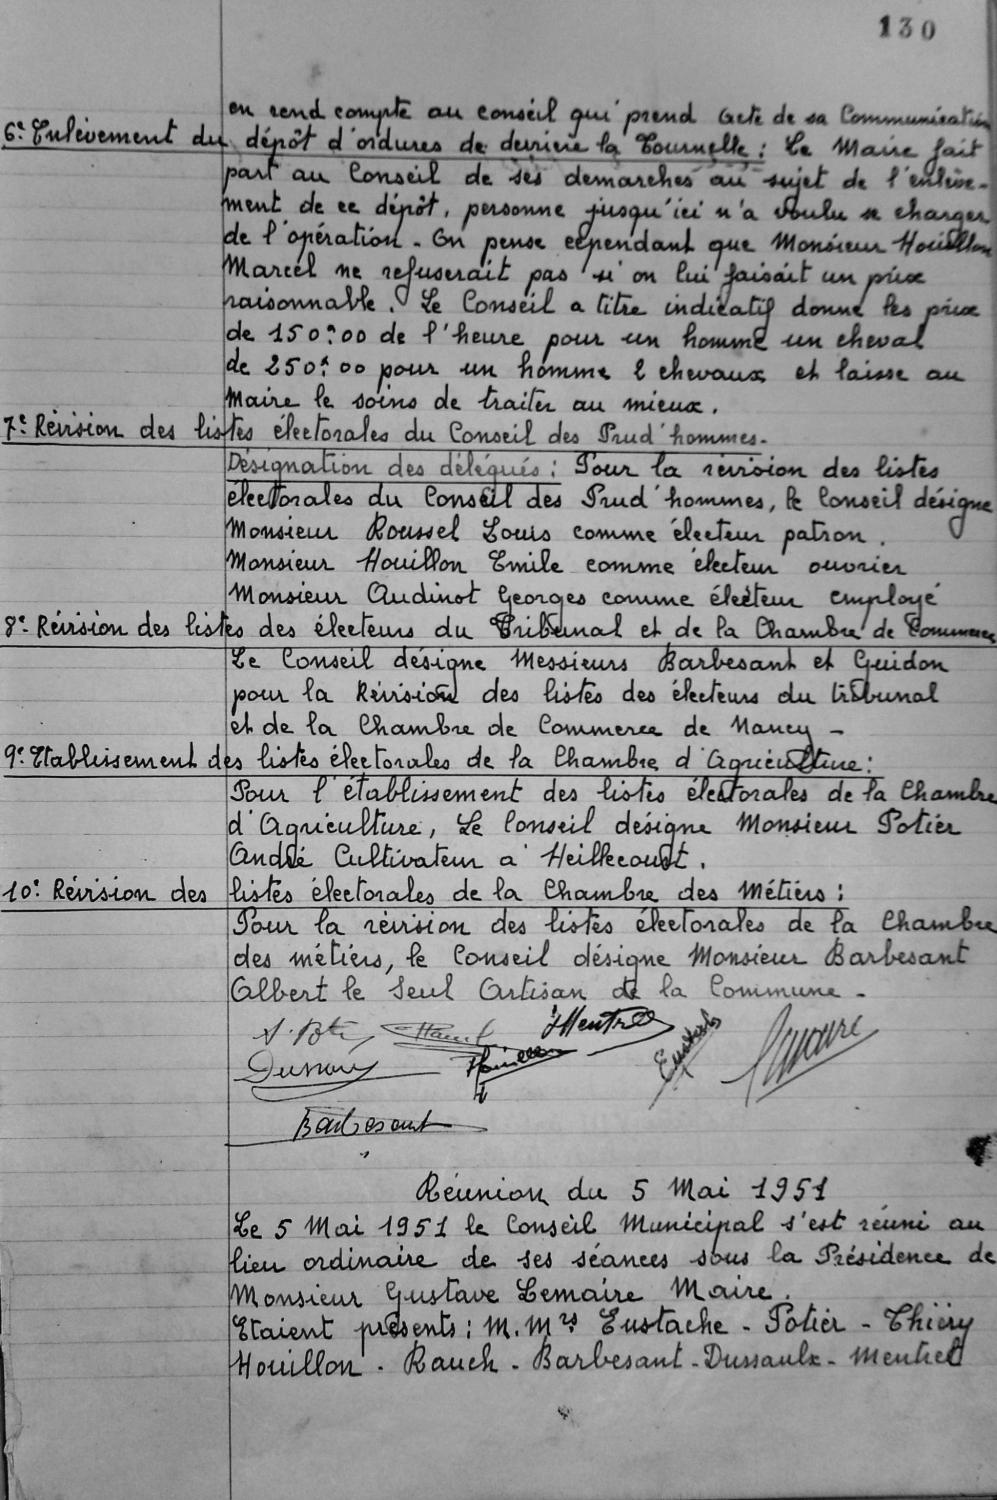 130
en rend compte au conseil qui prend acte de sa Communication
6° Enlèvement du dépôt d'ordures de derrière la Tournelle : Le Maire fait
part au Conseil de ses demarches au sujet de l'enlève-
ment de ce dépôt, personne jusqu'ici n'a voulu se charger
de l'opération - On pense cependant que Monsieur Houillon
Marcel ne refuserait pas si on lui faisait un prix
raisonnable. Le Conseil a titre indicatif donne les prix
de 150f00 de l'heure pour un homme un cheval
de 250f00 pour un homme 2 chevaux et laisse au
Maire le soins de traiter au mieux.
7° Révision des listes électorales du Conseil des Prud'hommes -
Désignation des délégués : Pour la révision des listes
électorales du Conseil des Prud'hommes, le Conseil désigne
Monsieur Roussel Louis comme électeur patron.
Monsieur Houillon Emile comme électeur ouvrier
Monsieur Audinot Georges comme électeur employé
8° Révision des listes des électeurs du Tribunal et de la Chambre de Commerce
Le Conseil désigne Messieurs Barbesant et Guidon
pour la Révision des listes des électeurs du tribunal
et de la Chambre de Commerce de Nancy -
9° Etablissement des listes électorales de la Chambre d'Agriculture :
Pour l'établissement des listes électorales de la Chambre
d'Agriculture, Le Conseil désigne Monsieur Potier
André Cultivateur a Heillecourt.
10° Révision des listes électorales de la Chambre des Métiers :
Pour la révision des listes électorales de la Chambre
des métiers, le Conseil désigne Monsieur Barbesant
Albert le seul Artisan de la Commune -
Houillon
Eustache
Barbesant
Réunion du 5 Mai 1951
Le 5 Mai 1951 le Conseil Municipal s'est réuni au
lieu ordinaire de ses séances sous la Présidence de
Monsieur Gustave Lemaire Maire.
Etaient présents : M.Mrs Eustache - Potier - Thiéry
Houillon - Rauch - Barbesant - Dussaulx - Mentrel